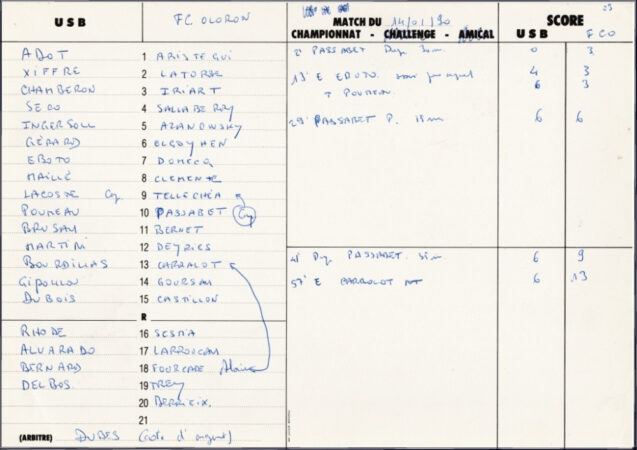 USB FC OLORON MATCH DU 14/01/90 SCORE
CHAMPIONNAT - CHALLENGE - AMICAL USB FCO
ADOT 1 ARISTEGUI
XIFFRE 2 LATORSE
CHAMBERON 3 IRIART
SERO 4 SALLABERRY
INGERSOLL 5 AZANOWSKY
GÉRARD 6 ELGOYHEN
EBOTO 7 DOMECQ
MAILLÉ 8 CLEMENTE
LACOSTE Cap 9 TELLECHEA
POUMEAU 10 PASSABET Cap
BRUSAM 11 BERNET
MARTIN 12 DEYRIES
BOURDILLAS 13 CARRALOT
GIPOULOU 14 GOURSAU
DUBOIS 15 CASTILLON
R
RHODE 16
ALVARADO 17 LARROUCAU
BERNARD 18 FOURCADE Alain
DELBOS. 19 TREY
20
21
(ARBITRE) DUBES (cote d'argent)
2' PASSABET 0 3
13' E EBOTO 4 3
T POUMEAU. 6 3
29' PASSABET P. 6 6
PASSABET. 6 9
57' E CARRALOT NT 6 13